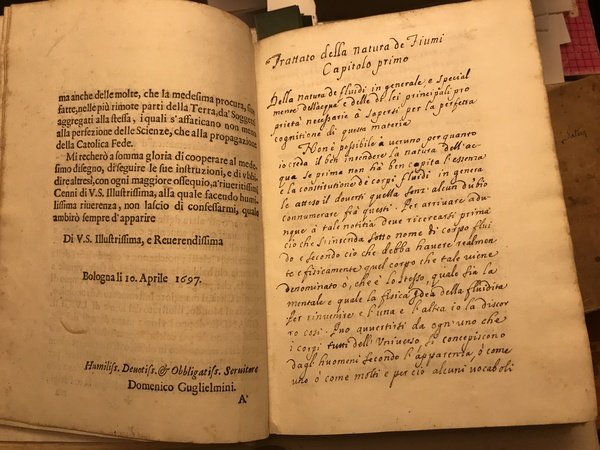 ma anche delle molte, che la medesima procura, sian
fatte, nelle più rimote parti della Terra, da' Soggetti
aggregati alla stessa, i quali s'affaticano non meno
alla perfezione delle Scienze, che alla propagazione
della Catolica Fede.
Mi recherò a somma gloria di cooperare al mede-
simo disegno, di seguire le sue instruzioni, e di ubbi-
dire altresì, con ogni maggiore ossequio, a' riveritissimi
Cenni di V.S. Illustrissima, alla quale facendo humi-
lissima riverenza, non lascio di confessarmi, quale
ambirò sempre d'apparire
Di V.S. Illustrissima, e Reuerendissima
Bologna li 10. Aprile 1697.
Humiliss. Deuotiss. & Obbligatiss. Seruitore
Domenico Guglielmini.
A.
Trattato della natura de Fiumi
Capitolo primo
Della natura de fluidi in generale e special
mente dell'acque e delle di lei principali pro
prietà necessarie à sapersi per la perfetta
cognitione di questa materia
Non è possibile à ueruno per quanto
io creda il ben intendere la natura dell'ac
qua se prima non hà ben capita l'essenza
e la constitutione de corpi fluidi in genera
le atteso il douersi quella senz' alcun dubio
connumerare frà questi. Per arriuare adu-
nque à tale notitia deue ricercarsi prima
ciò che s'intenda sotto nome di corpo flui
do e secondo ciò che debba hauere realmen
te e fisicamente quel corpo che tale uiene
denominato ò, che è lo stesso, quale sia la
mentale e quale la fisica idea della fluidità
Per rinuenire e l'una e l'altra io la discor
ro così. Può auuertirsi da ogn' uno che
i corpi tutti dell' Vniuerso, si concepiscono
dagli huomeni secondo l'apparenza, ò come
uno ò come molti e per ciò alcuni vocaboli